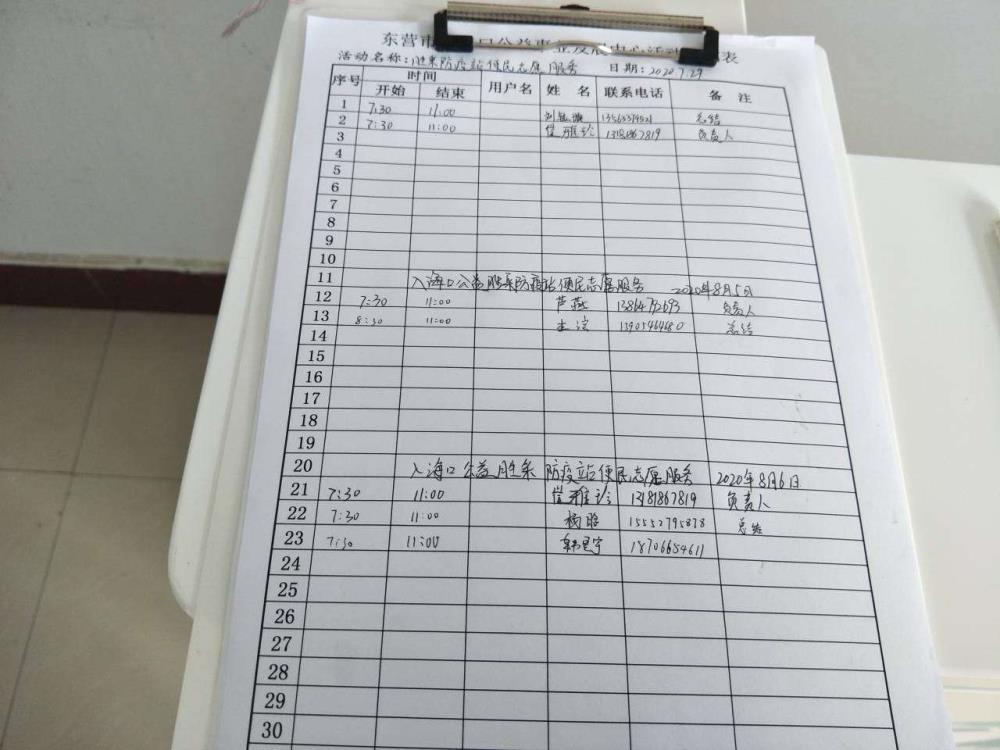 东营市 口公益事业发展中心活动 表
活动名称：胜东防疫站便民志愿服务 日期：2020.7.29
序号 时间 用户名 姓 名 联系电话 备 注
开始 结束
1 7:30 11:00 总结
2 7:30 11:00 负责人
3
4
5
6
7
8
9
10
11 入海口公益胜东防疫站便民志愿服务 2020年8月5日
12 7:30 11:00 芦燕 负责人
13 8:30 11:00 总结
14
15
16
17
18
19
20 入海口公益胜东防疫站便民志愿服务 2020年8月6日
21 7:30 11:00 13181867819 负责人
22 7:30 11:00 杨晗 15552795878 总结
23 7:30 11:00 18706654611
24
25
26
27
28
29
30